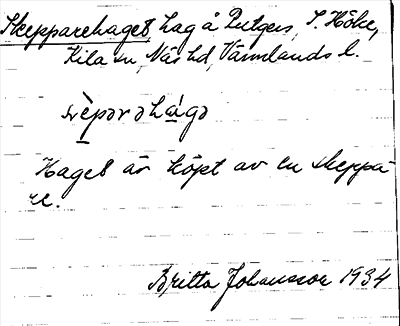 Skepparehaget, hag å Rutgers, S. Höke,
Kila sn, Näs hd, Värmlands l.
Haget är köpt av en skeppa-
re.
Britta Johansson 1934